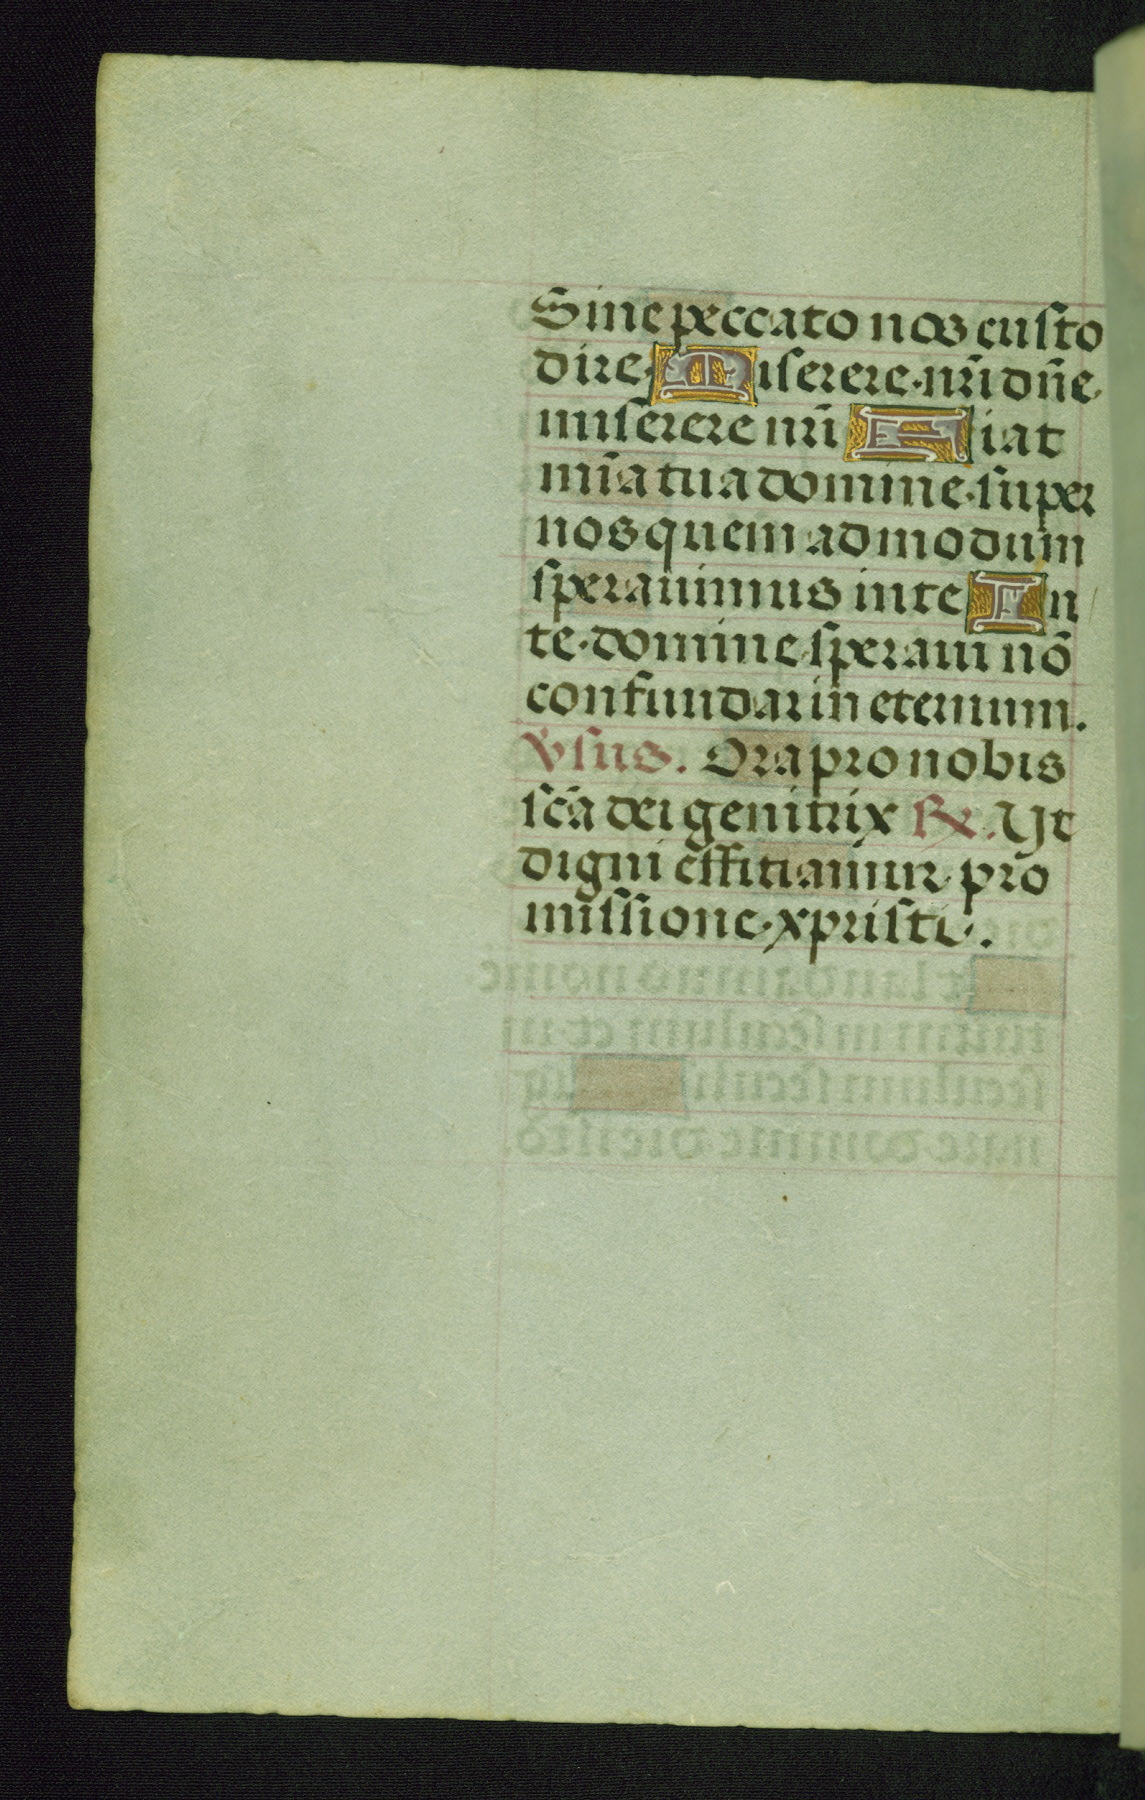 Sine peccato nos custo
dire. Miserere nr̄i dn̄e
miserere nr̄i Fiat
mīa tua domine super
nos quem ad modum
speravimus in te In
te domine speravi nō
confundar in eternum.
v̄sus. Ora pro nobis
sc̄a dei genitrix ℟. Ut
digni effitiamur pro
missione xpristi.